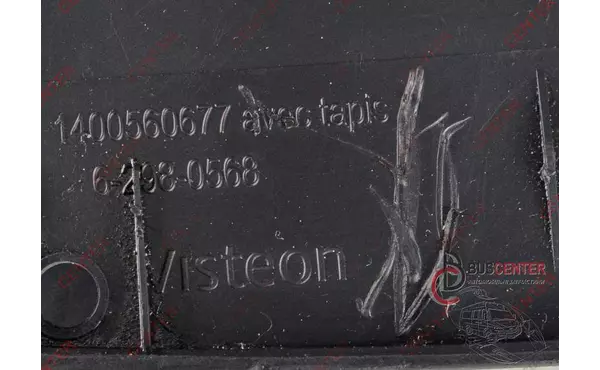 1400560677 avec tapis
6-298-0568
Visteon
BUSCENTER
АВТОМОБІЛЬНІ ЗАПЧАСТИНИ